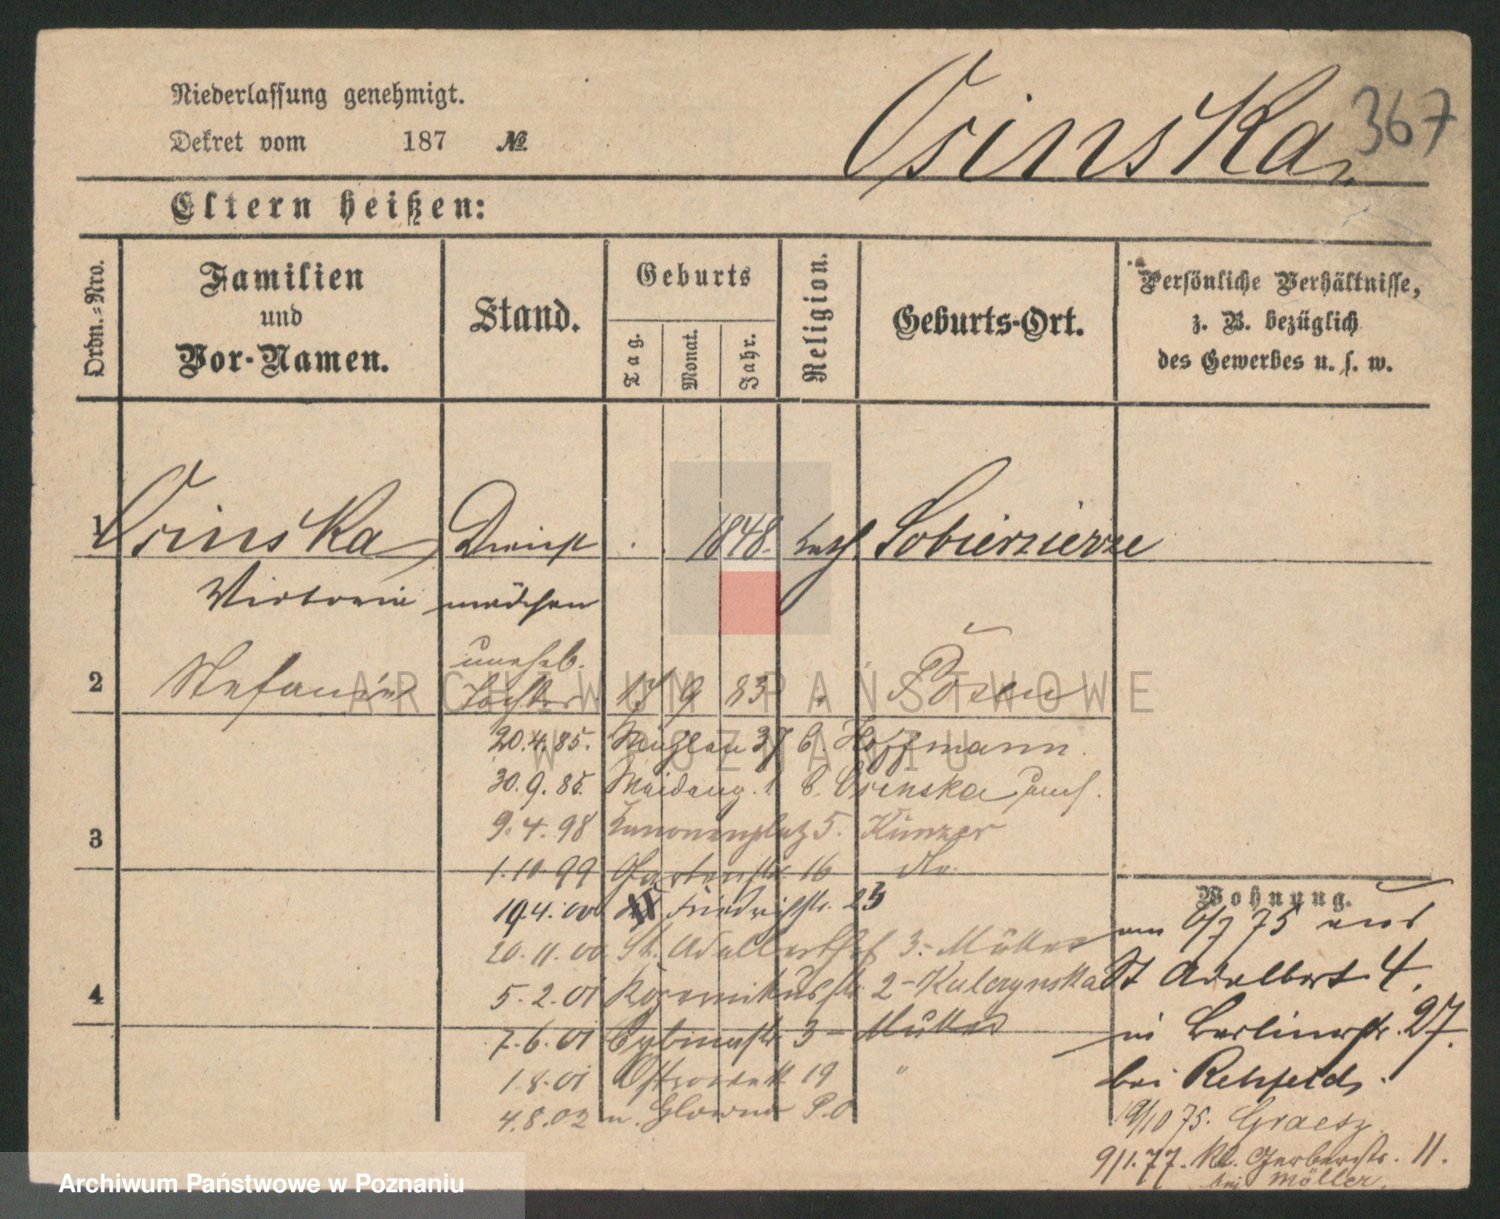 Niederlassung genehmigt.
Dekret vom 187 №
Osinska
367
Eltern heißen:
Ordn.-Nro.
Familien und Vor-Namen.
Stand.
Geburts
Tag.
Monat.
Jahr.
Religion.
Geburts-Ort.
Persönliche Verhältnisse,
z. B. bezüglich
des Gewerbes u. s. w.
1 Osinska Dienst 1848. kath. Sobierzierze
Victoria mädchen
unehel.
2 Stefania Tochter 17 9 83 " Posen
20.4.85. Mühlen 37 b Hoffmann.
30.9.85. b. Osinska
3
9.4.98 Kanonenplatz 5. Künzer
1.10.99 Gartenstr. 16 do.
19.4.00 Friedrichstr. 23
Wohnung.
am 6/7 75 aus
20.11.00 St. Adalberthof 3 - Müller
St Adalbert 4.
4
5.2.01 2 - Kulczynska
in Berlinerstr. 27.
7.6.01 Cybinastr. 3 - Müller
bei Rehfeld.
1.8.01 Ostrowek 19 "
19/10 75. Graetz
4.8.02 n. Glowno P.O
9/1.77. Kl. Gerberstr. 11.
bei Möller.
ARCHIWUM PAŃSTWOWE
W POZNANIU
Archiwum Państwowe w Poznaniu